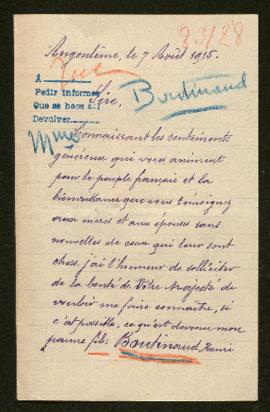 83/28
Angoulême, le 7 Août 1915.
A
Pedir informes
Que se hace
Devolver
Sire,
Bordinaud
Mme
Connaissant les sentiments
généreux qui vous animent
pour le peuple français et la
bienveillance que vous témoignez
aux mères et aux épouses sans
nouvelles de ceux qui leur sont
chers, j'ai l'honneur de solliciter
de la bonté de Votre Majesté de
vouloir me faire connaître, si
c'est possible, ce qu'est devenu mon
pauvre fils: Bordinaud, Henri